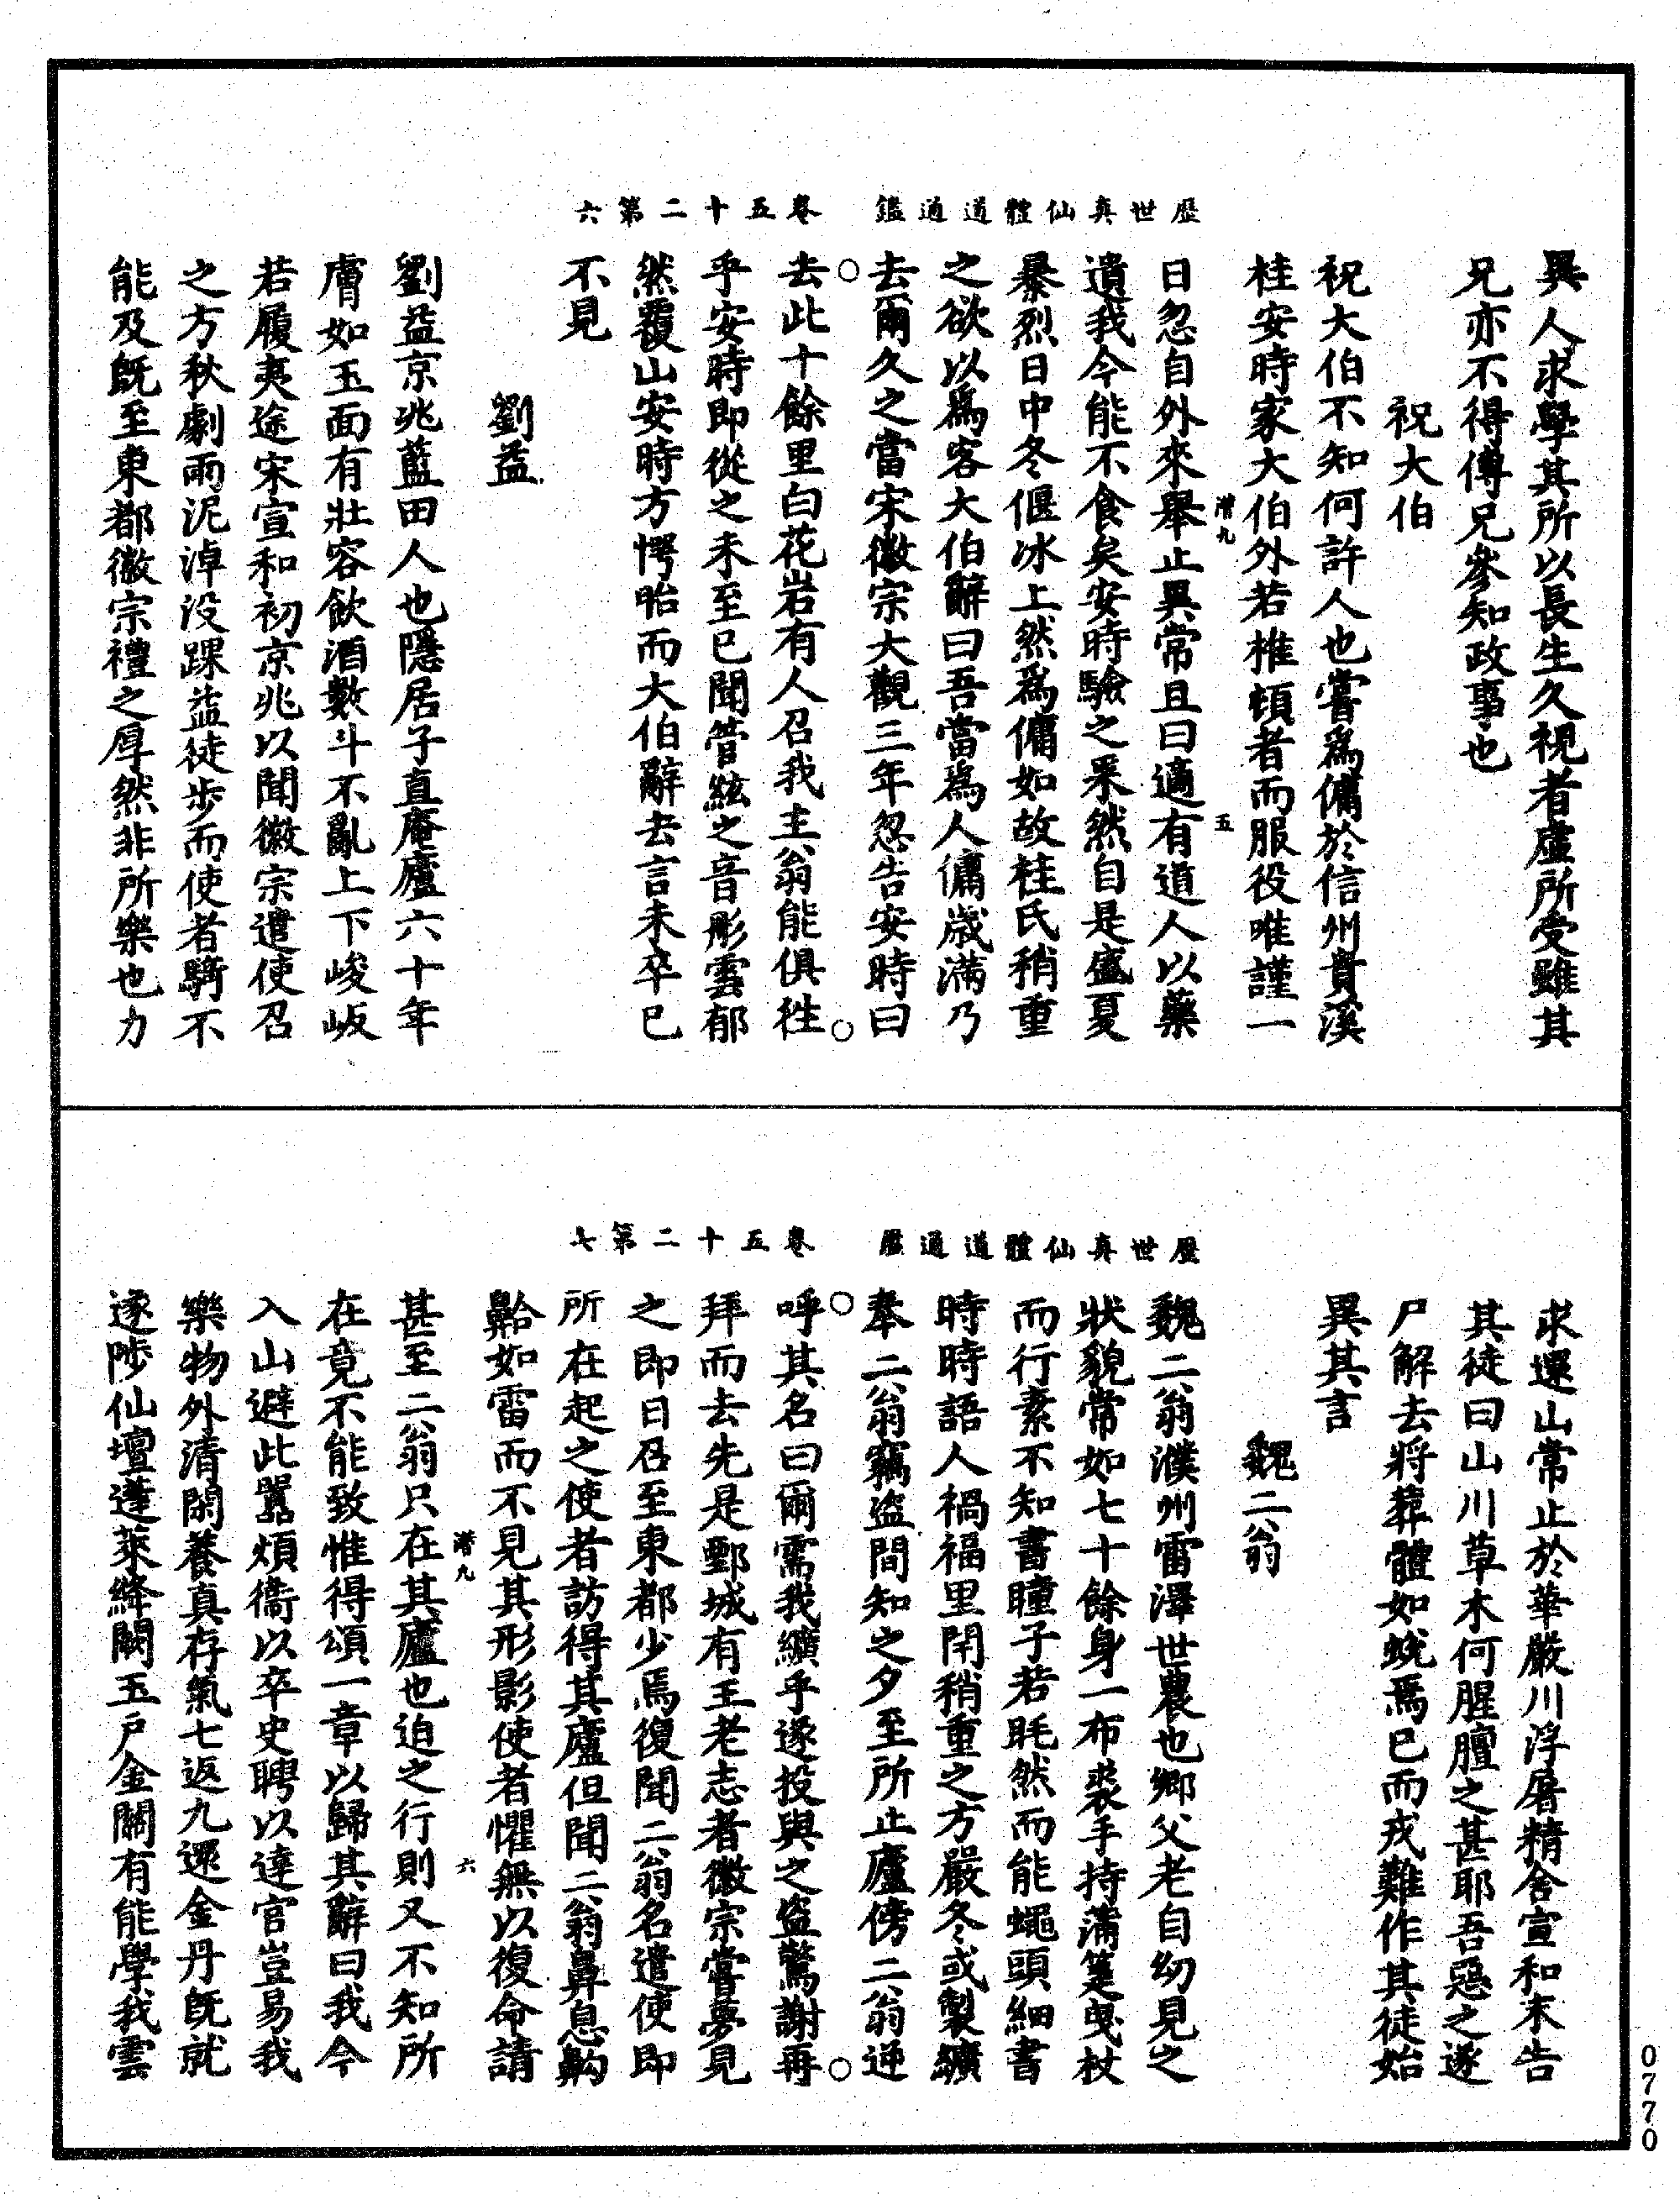 歷世真仙體道通鑑　卷五十二第六
異人求學其所以長生久視者虛所受雖其
兄亦不得傳兄參知政事也
祝大伯
祝大伯不知何許人也嘗為傭於信州貴溪
桂安時家大伯外若椎頓者而服役唯謹一
潜九　五
日忽自外來舉止異常且曰適有道人以藥
遺我今能不食矣安時驗之果然自是盛夏
暴烈日中冬偃冰上然為傭如故桂氏稍重
之欲以為客大伯辭曰吾當為人傭歲滿乃
去爾久之當宋徽宗大觀三年忽告安時曰
去此十餘里白花岩有人召我主翁能俱徃
乎安時即從之未至已聞管絃之音彤雲郁
然覆山安時方愕眙而大伯辭去言未卒已
不見
劉益
劉益京兆藍田人也隱居子直庵廬六十年
膚如玉面有壯容飲酒數斗不亂上下峻坂
若履夷途宋宣和初京兆以聞徽宗遣使召
之方秋劇雨泥淖沒踝益徒步而使者騎不
能及旣至東都徽宗禮之厚然非所樂也力
歷世真仙體道通鑑　卷五十二第七
求還山常止於華嚴川浮屠精舍宣和末告
其徒曰山川草木何腥膻之甚耶吾惡之遂
尸解去將葬體如蛻焉已而戎難作其徒始
異其言
魏二翁
魏二翁濮州雷澤世農也鄉父老自幼見之
狀貌常如七十餘身一布裘手持蒲箑曳杖
而行素不知書瞳子若眊然而能蠅頭細書
時時語人禍福里閈稍重之方嚴冬或製纊
奉二翁竊盜間知之夕至所止廬傍二翁逆
呼其名曰爾需我纊乎遂投與之盜驚謝再
拜而去先是鄄城有王老志者徽宗嘗夢見
之即日召至東都少焉復聞二翁名遣使即
所在起之使者訪得其廬但聞二翁鼻息齁
齁如雷而不見其形影使者懼無以復命請
潜九　六
甚至二翁只在其廬也迫之行則又不知所
在竟不能致惟得頌一章以歸其辭曰我今
入山避此囂煩衙以卒史聘以達官豈易我
樂物外清閑養真存氣七返九還金丹旣就
遂陟仙壇蓬萊絳闕玉戶金關有能學我雲
0770